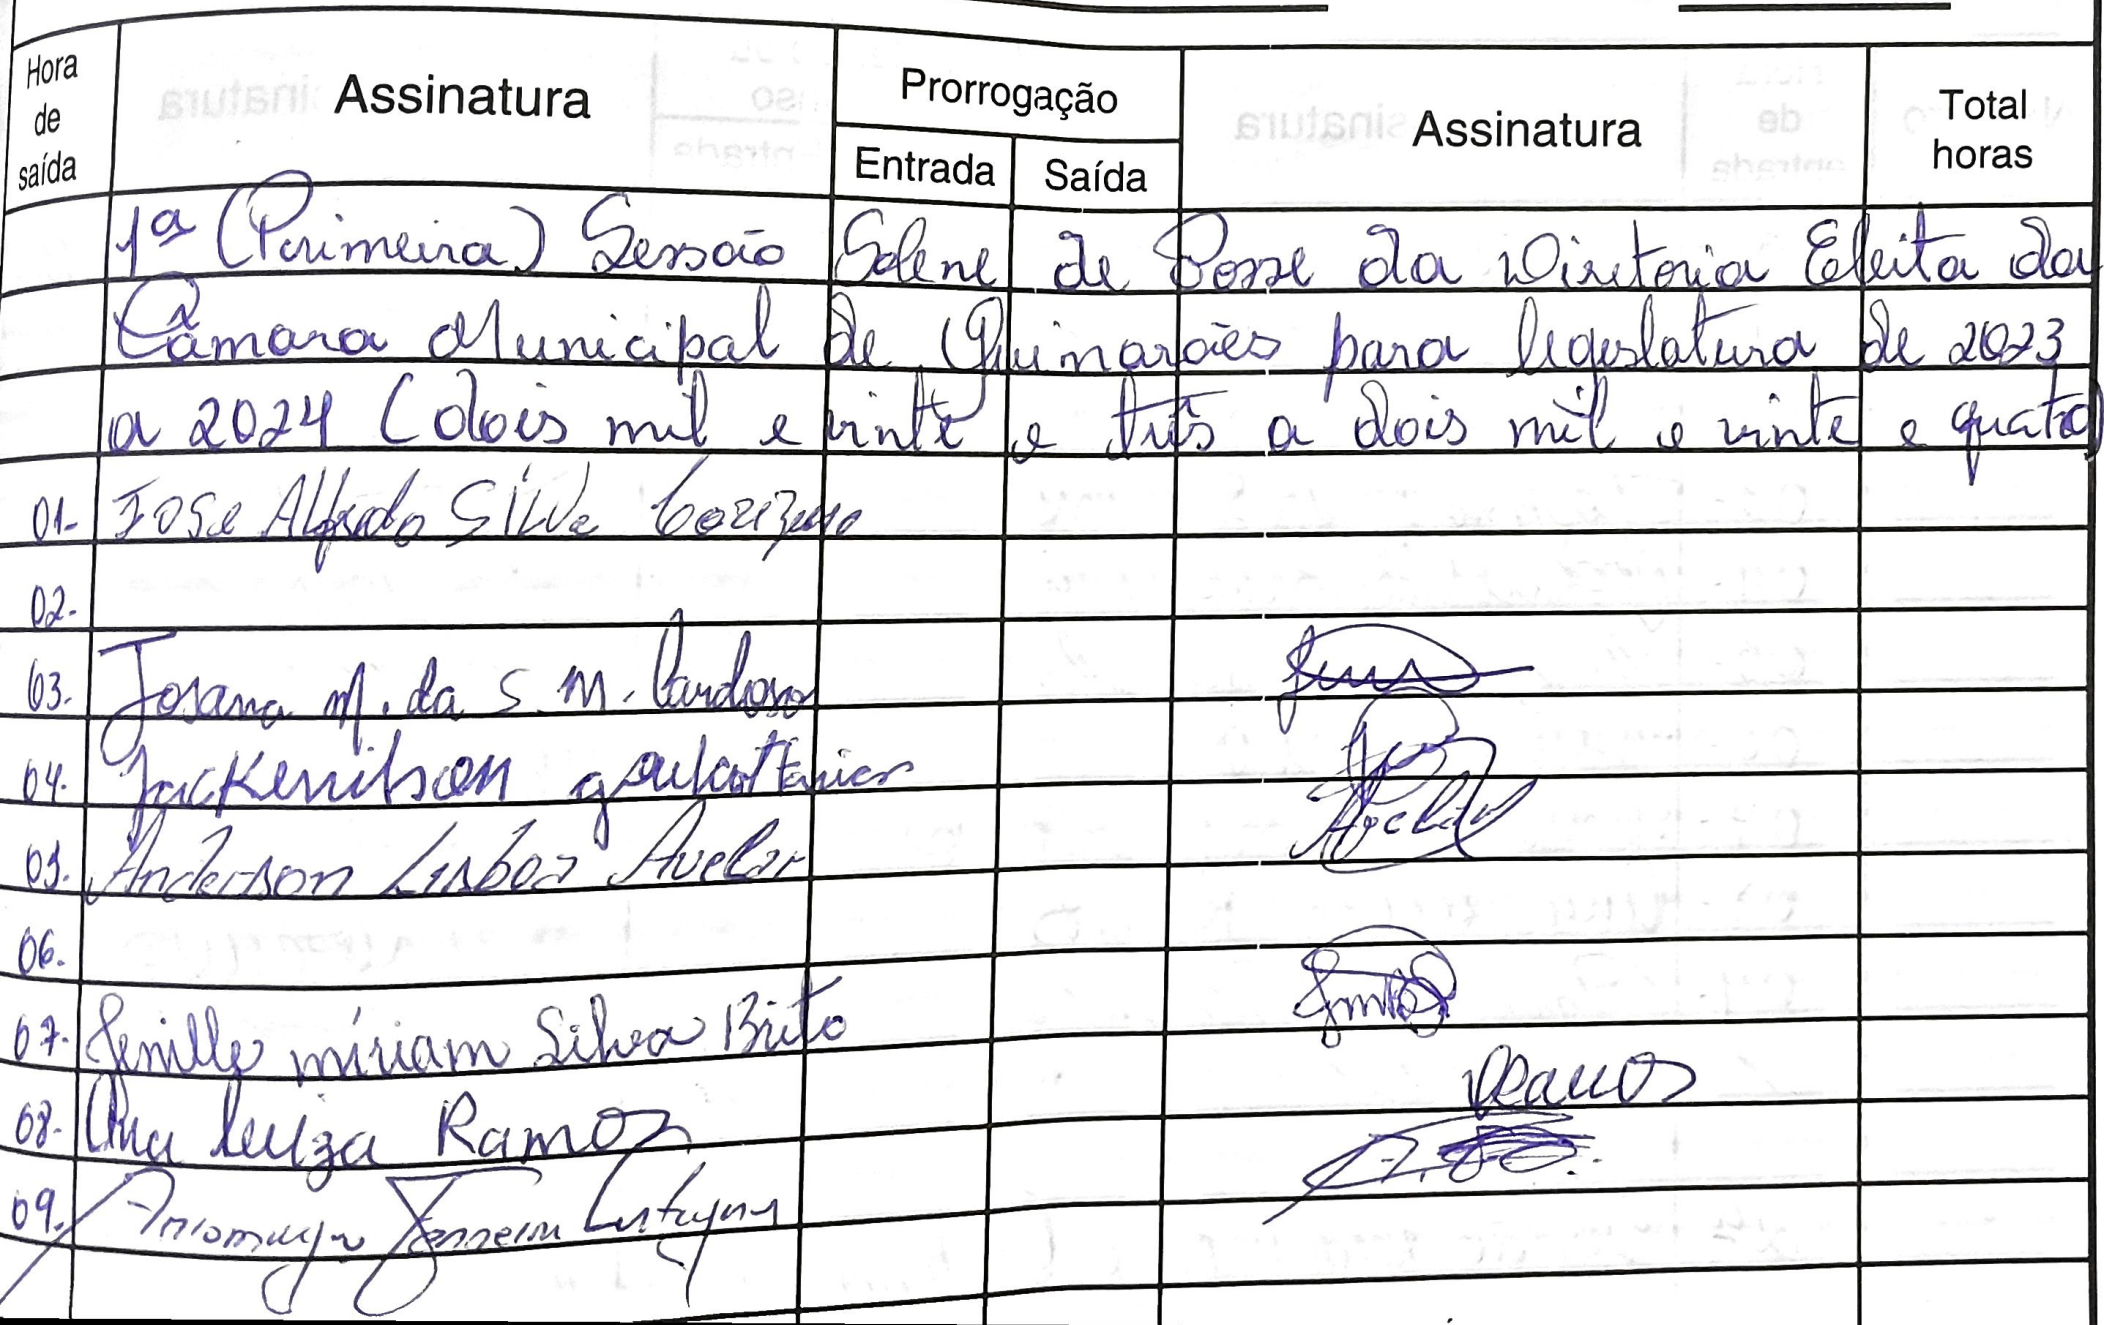 Hora de saída Assinatura Prorrogação Assinatura Total horas
Entrada Saída
1ª (Primeira) Sessão Solene de Posse da Diretoria Eleita da
Câmara Municipal de Guimarães para legislatura de 2023
a 2024 (dois mil e vinte e três a dois mil e vinte e quatro)
01- Jose Alfredo Silva
02-
03. Josana M. da S. M. Cardoso
04. Jackenilson
05. Anderson Lisboa Avelar
06.
07. Jenille míriam Silva Brito
08- Ana Luiza Ramos Ramos
09.